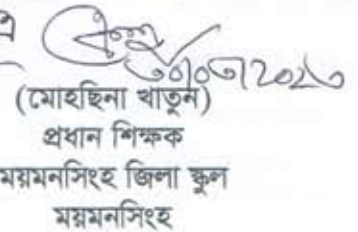 (মোহছিনা খাতুন)
প্রধান শিক্ষক
ময়মনসিংহ জিলা স্কুল
ময়মনসিংহ